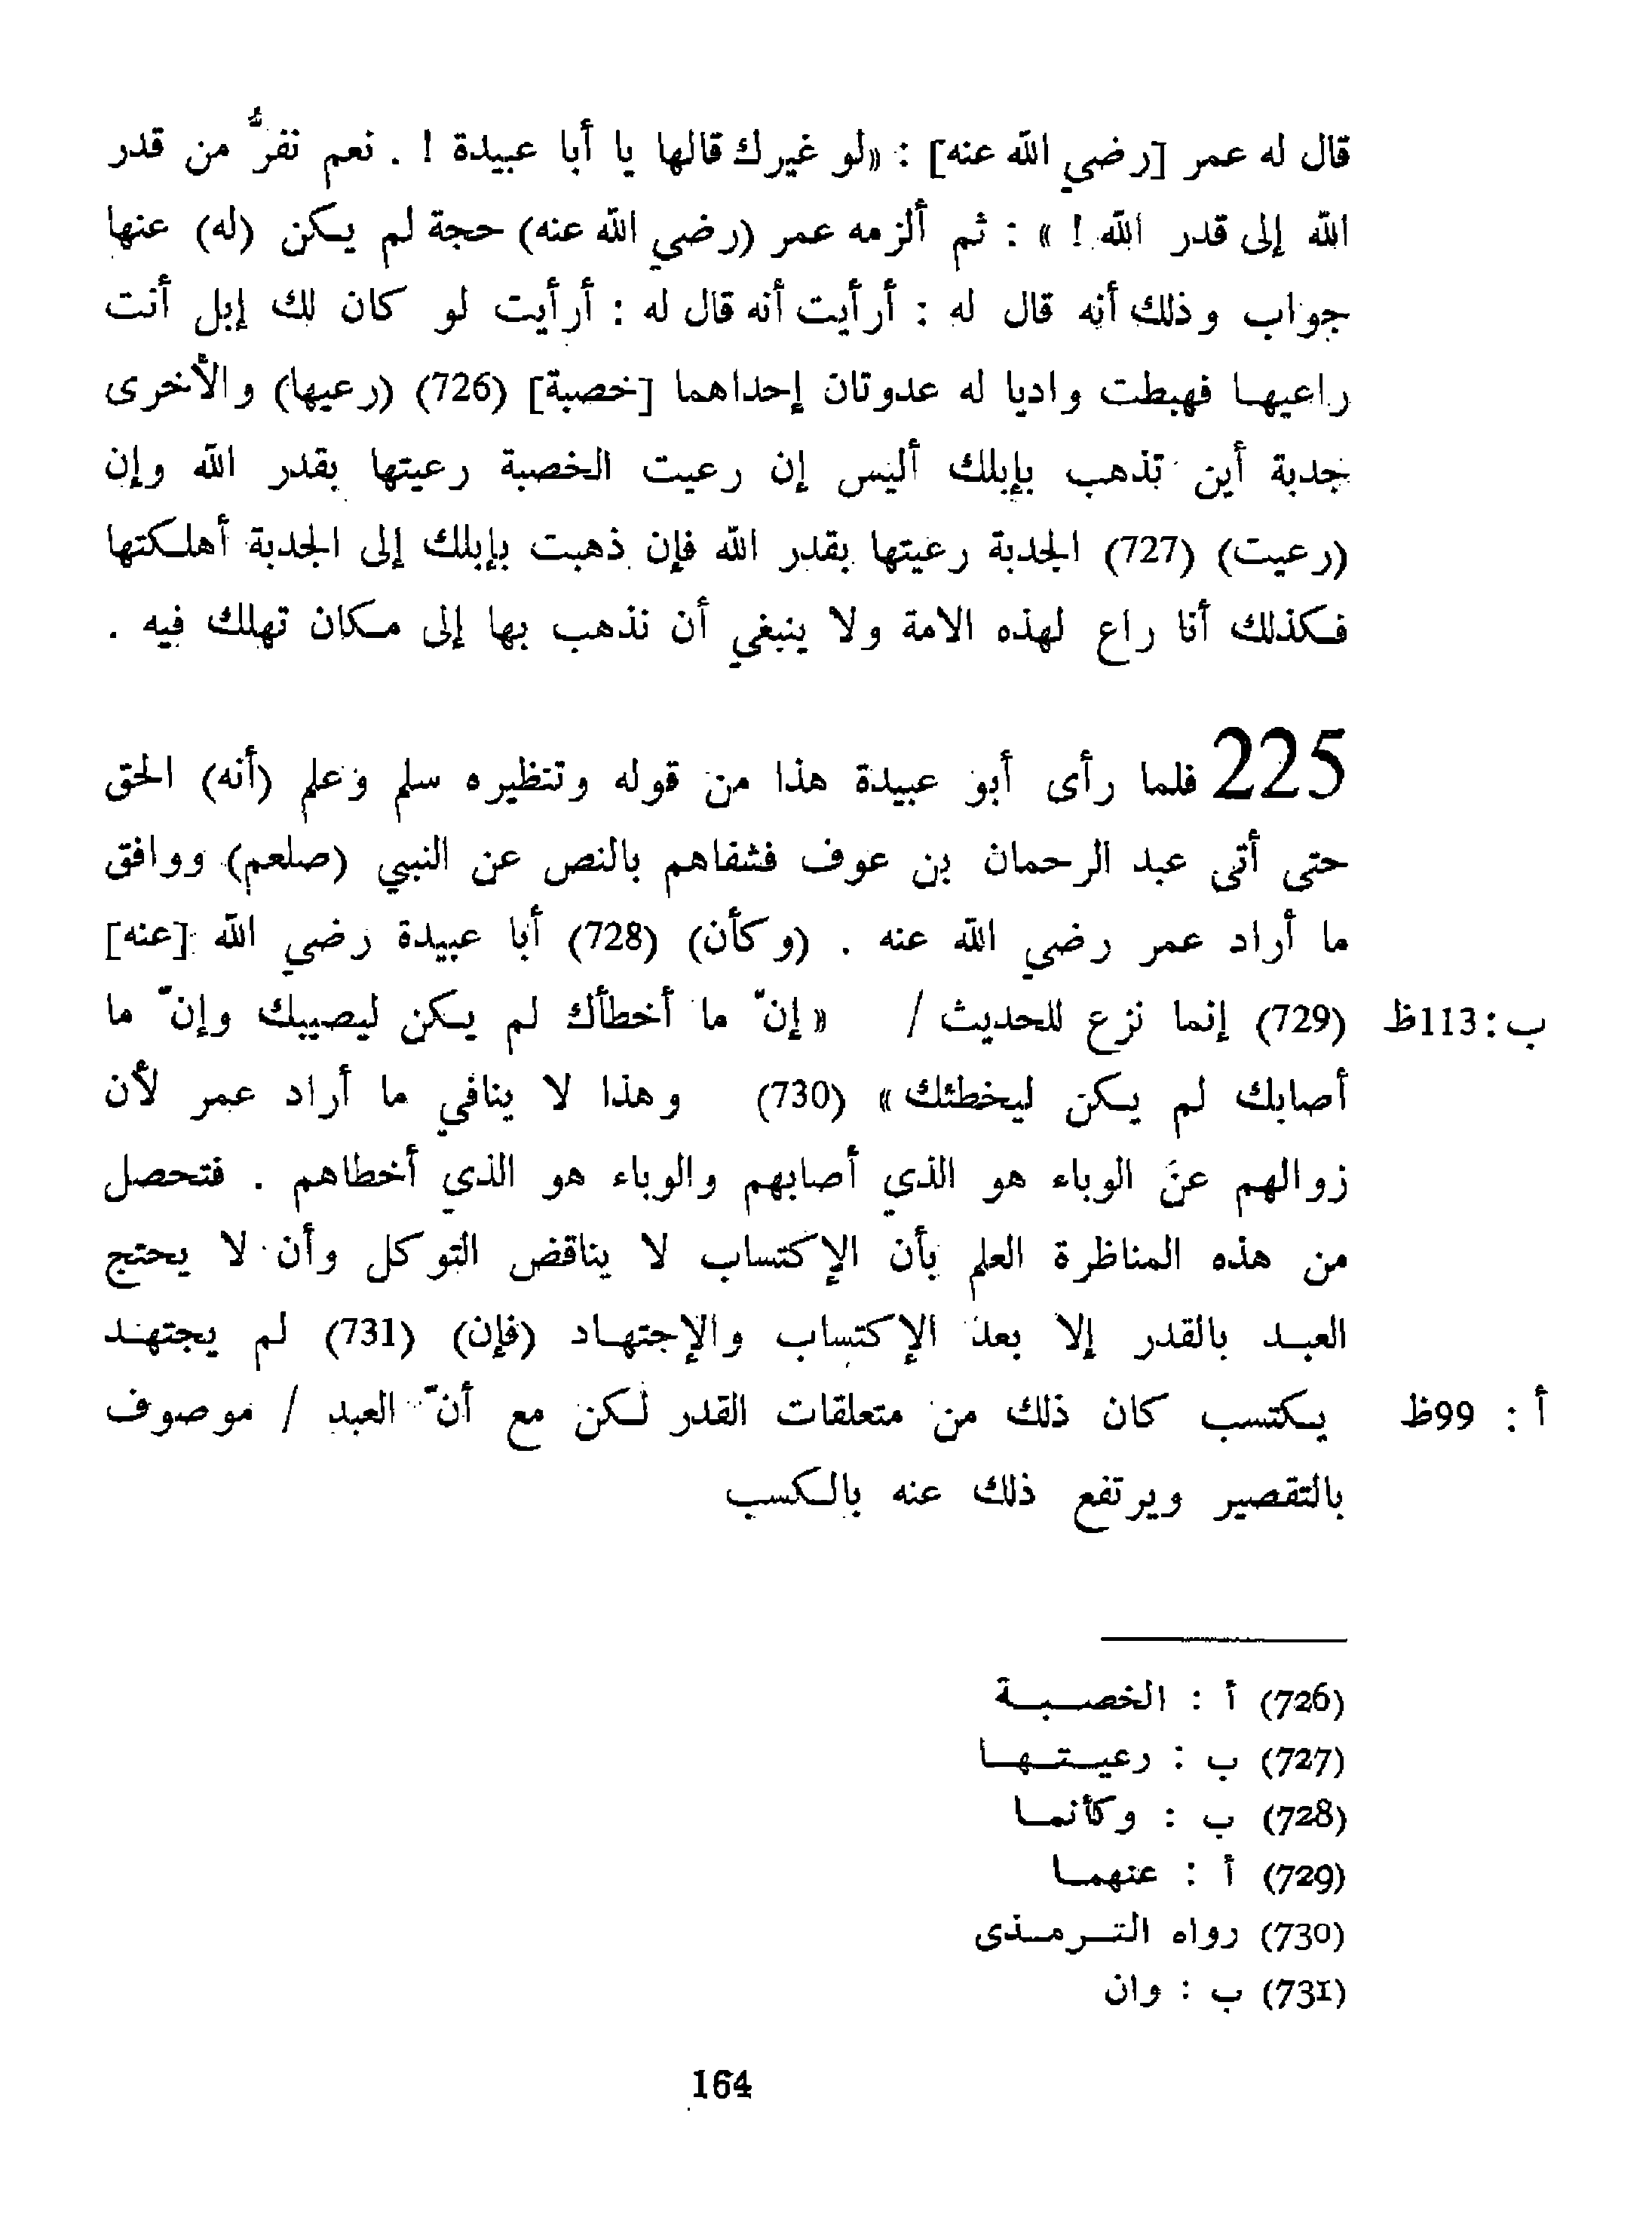 قال له عمر [رضي الله عنه] : «لو غيرك قالها يا أبا عبيدة ! . نعم نفرُّ من قدر
الله إلى قدر الله ! » : ثم ألزمه عمر (رضي الله عنه) حجة لم يكن (له) عنها
جواب وذلك أنه قال له : أرأيت أنه قال له : أرأيت لو كان لك إبل أنت
راعيها فهبطت واديا له عدوتان إحداهما [خصبة] (726) (رعيها) والأخرى
جدبة أين تذهب بإبلك أليس إن رعيت الخصبة رعيتها بقدر الله وإن
(رعيت) (727) الجدبة رعيتها بقدر الله فإن ذهبت بإبلك إلى الجدبة أهلكتها
فكذلك أنا راع لهذه الامة ولا ينبغي أن نذهب بها إلى مكان تهلك فيه .
225 فلما رأى أبو عبيدة هذا من قوله وتنظيره سلم وعلم (أنه) الحق
حتى أتى عبد الرحمان بن عوف فشفاهم بالنص عن النبي (صلعم) ووافق
ما أراد عمر رضي الله عنه . (وكأن) (728) أبا عبيدة رضي الله [عنه]
ب : 113ظ (729) إنما نزع للحديث / «إنّ ما أخطأك لم يكن ليصيبك وإنّ ما
أصابك لم يكن ليخطئك» (730) وهذا لا ينافي ما أراد عمر لأن
زوالهم عن الوباء هو الذي أصابهم والوباء هو الذي أخطاهم . فتحصل
من هذه المناظرة العلم بأن الإكتساب لا يناقض التوكل وأن لا يحتج
العبد بالقدر إلا بعد الإكتساب والإجتهاد (فإن) (731) لم يجتهد
أ : 99ظ يكتسب كان ذلك من متعلقات القدر لكن مع أنّ العبد / موصوف
بالتقصير ويرتفع ذلك عنه بالكسب
(726) أ : الخصبة
(727) ب : رعيتها
(728) ب : وكأنما
(729) أ : عنهما
(730) رواه الترمذى
(731) ب : وان
164